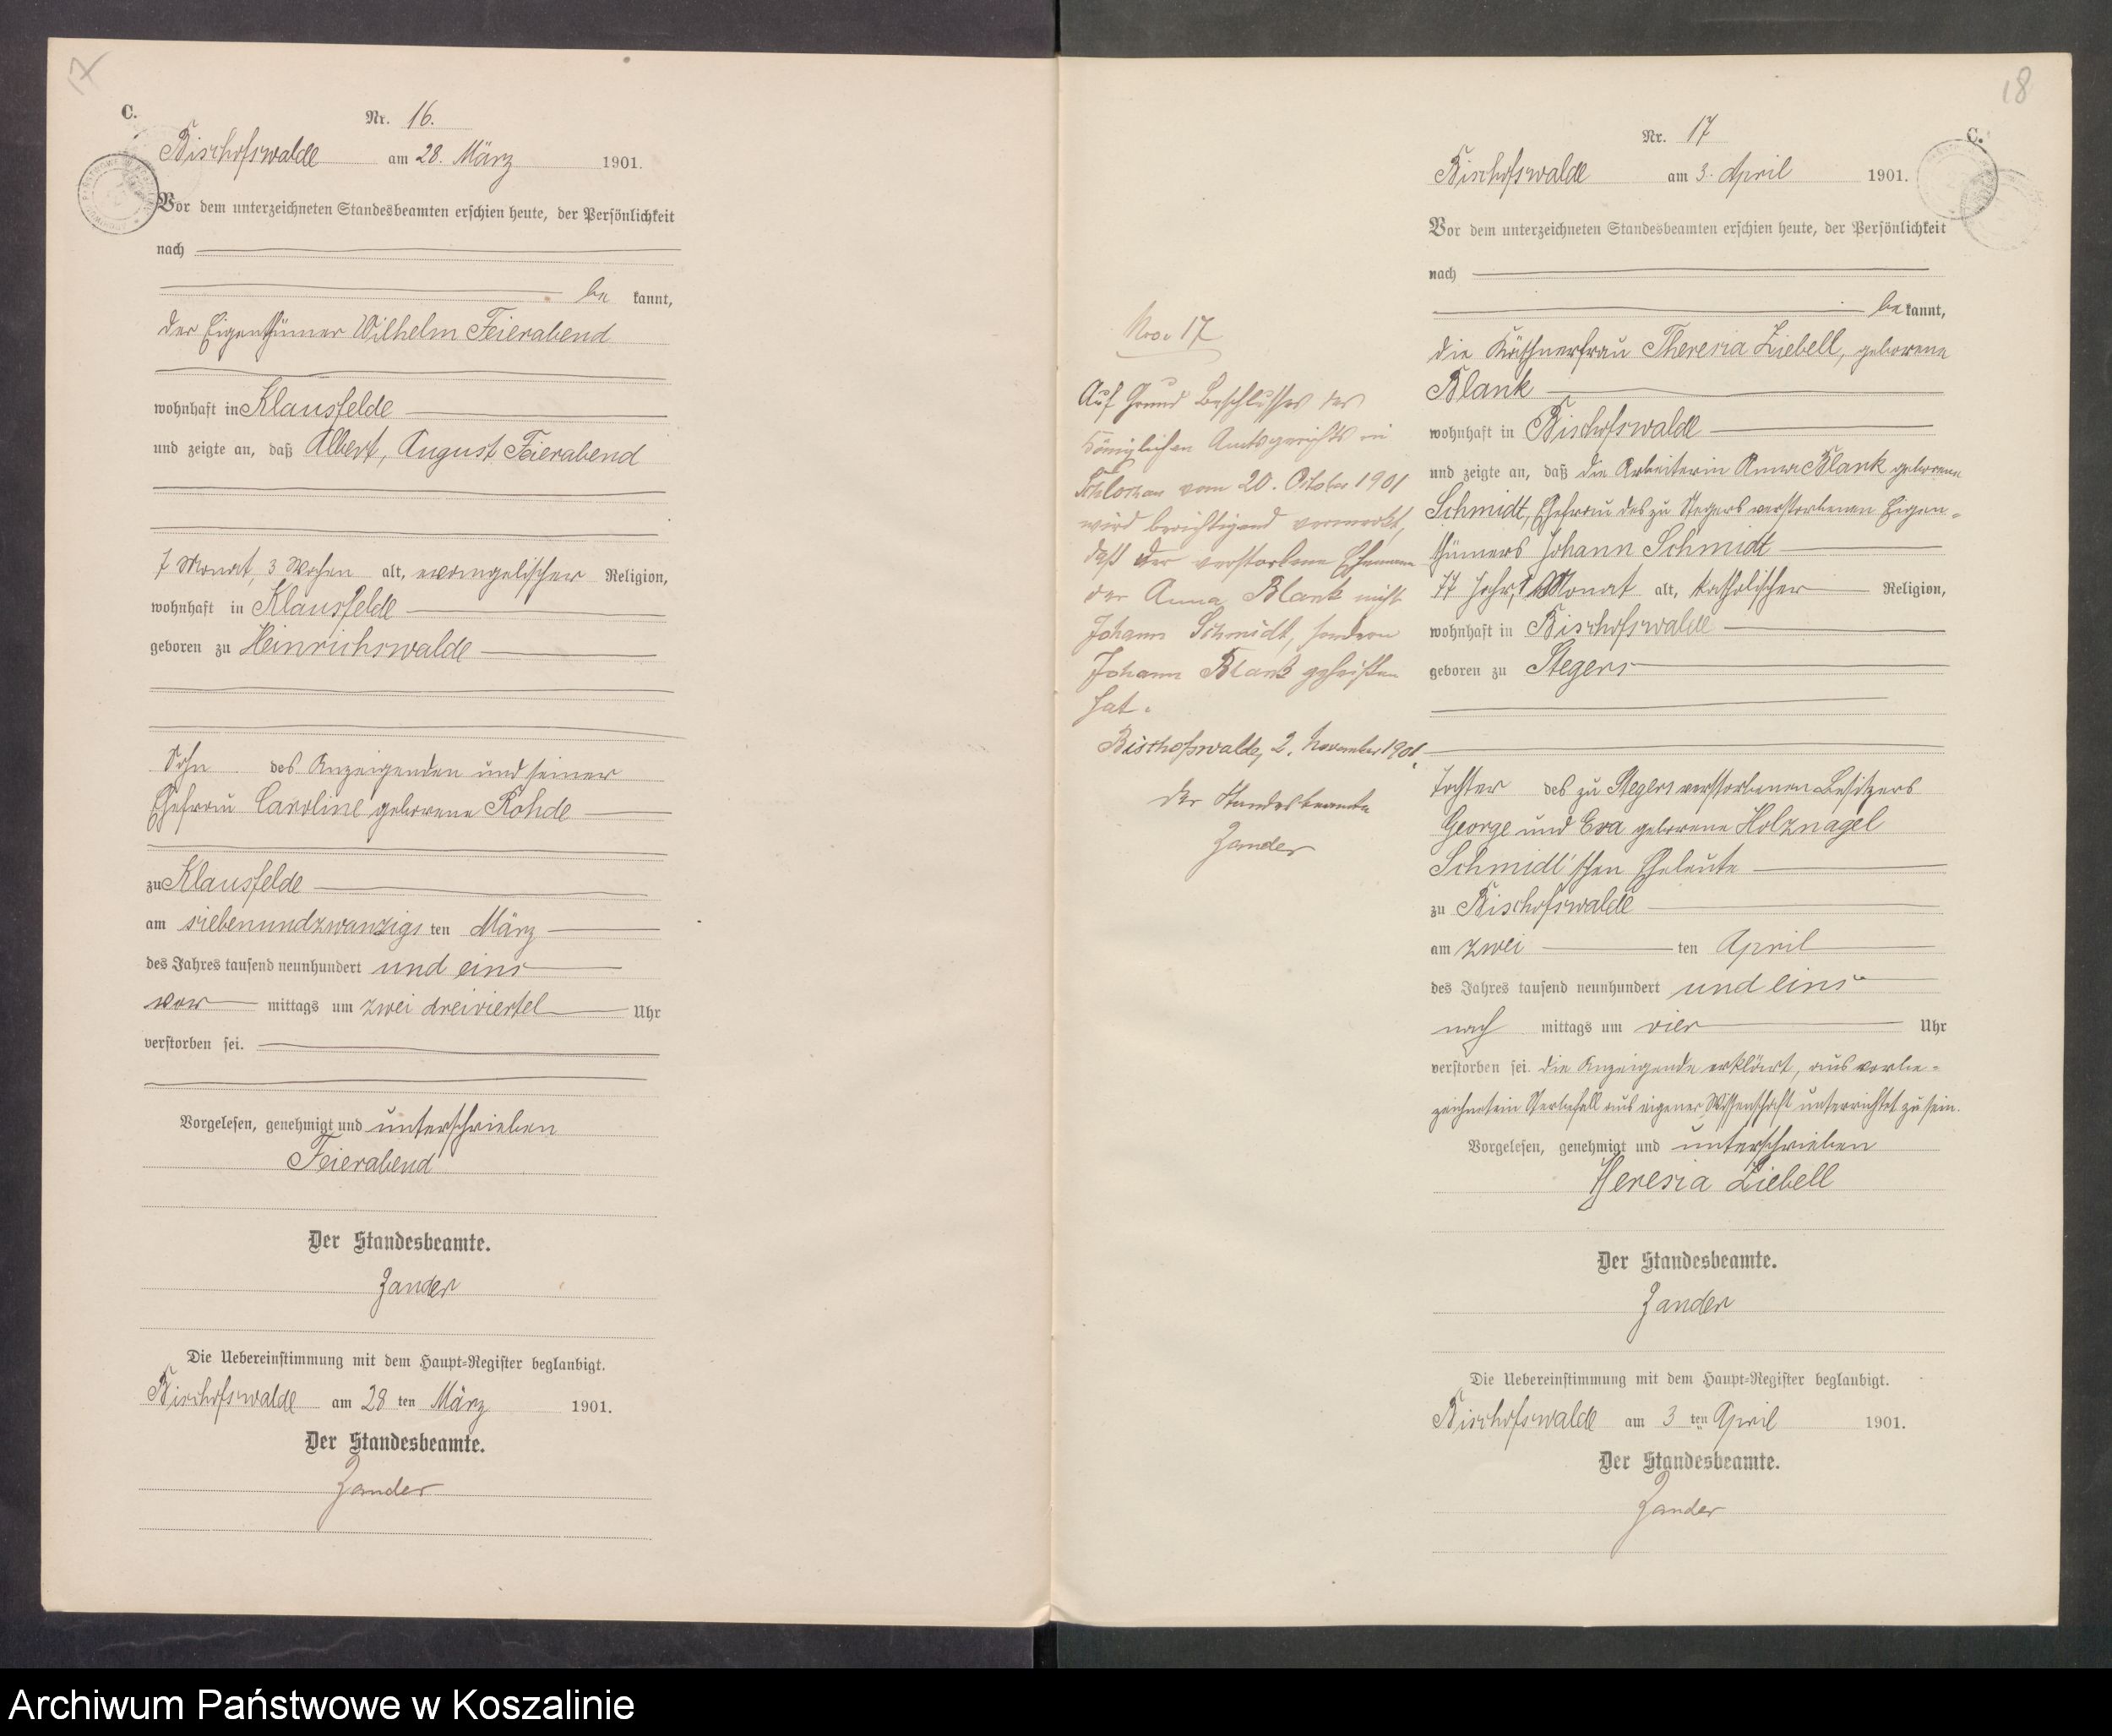 17
C.
Nr. 16.
Bischofswalde am 28. März 1901.
Vor dem unterzeichneten Standesbeamten erschien heute, der Persönlichkeit
nach
be kannt,
der Eigenthümer Wilhelm Feierabend
wohnhaft in Klausfelde
und zeigte an, daß Albert, August Feierabend
7 Monat, 3 Wochen alt, evangelischer Religion,
wohnhaft in Klausfelde
geboren zu Heinrichswalde
Sohn des Anzeigenden und seiner
Ehefrau Caroline geborene Rohde
zu Klausfelde
am siebenundzwanzigs ten März
des Jahres tausend neunhundert und eins
vor mittags um zwei dreiviertel Uhr
verstorben sei.
Vorgelesen, genehmigt und unterschrieben
Feierabend
Der Standesbeamte.
Zander
Die Uebereinstimmung mit dem Haupt-Register beglaubigt.
Bischofswalde am 28 ten März 1901.
Der Standesbeamte.
Zander
Nro. 17
Auf Grund Beschlusses des
Königlichen Amtsgerichts in
Schlochau vom 20. October 1901
wird berichtigend vermerkt,
daß der verstorbene Ehemann
der Anna Blank nicht
Johann Schmidt, sondern
Johann Blank geheißen
hat.
Bischofswalde, 2. November 1901.
Der Standesbeamte
Zander
18
C.
Nr. 17
Bischofswalde am 3. April 1901.
Vor dem unterzeichneten Standesbeamten erschien heute, der Persönlichkeit
nach
be kannt,
die Käthnerfrau Theresia Liebell, geborene
Blank
wohnhaft in Bischofswalde
und zeigte an, daß die Arbeiterin Anna Blank geborene
Schmidt, Ehefrau des zu Stegers verstorbenen Eigen-
thümers Johann Schmidt
77 Jahr, 1 Monat alt, katholischer Religion,
wohnhaft in Bischofswalde
geboren zu Stegers
Tochter des zu Stegers verstorbenen Besitzers
George und Eva geborene Holznagel
Schmidt'schen Eheleute
zu Bischofswalde
am zwei ten April
des Jahres tausend neunhundert und eins
nach mittags um vier Uhr
verstorben sei. Die Anzeigende erklärt, aus vorbe-
zeichnetem Sterbefall aus eigener Wissenschaft unterrichtet zu sein.
Vorgelesen, genehmigt und unterschrieben
Theresia Liebell
Der Standesbeamte.
Zander
Die Uebereinstimmung mit dem Haupt-Register beglaubigt.
Bischofswalde am 3 ten April 1901.
Der Standesbeamte.
Zander
Archiwum Państwowe w Koszalinie